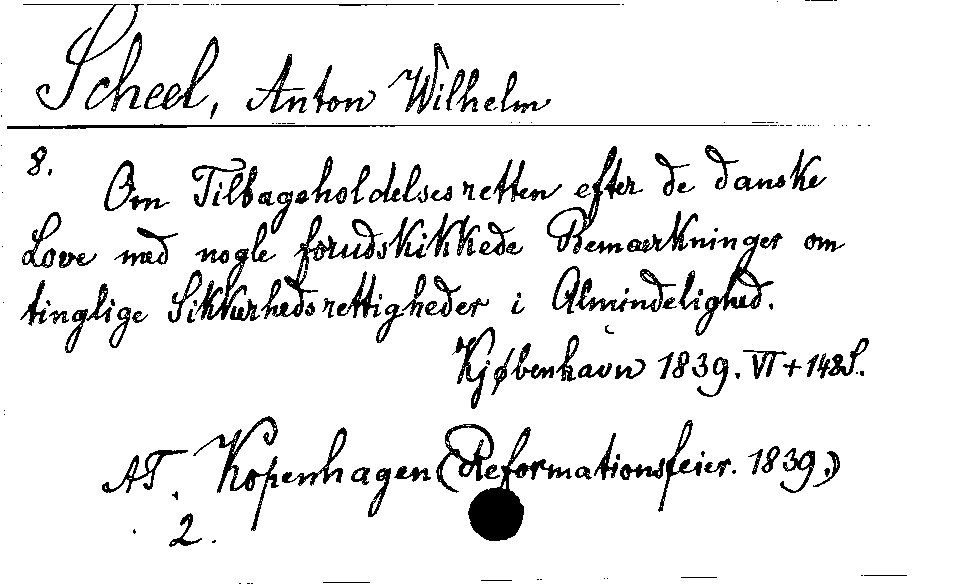 Scheel, Anton Wilhelm
8.
Om Tilbageholdelsesretten efter de danske
Love med nogle forudskikkede Bemærkninger om
tinglige Sikkerhedsrettigheder i Almindelighed.
Kjøbenhavn 1839. VI + 148 S.
AT. Kopenhagen (Reformationsfeier. 1839.)
2.